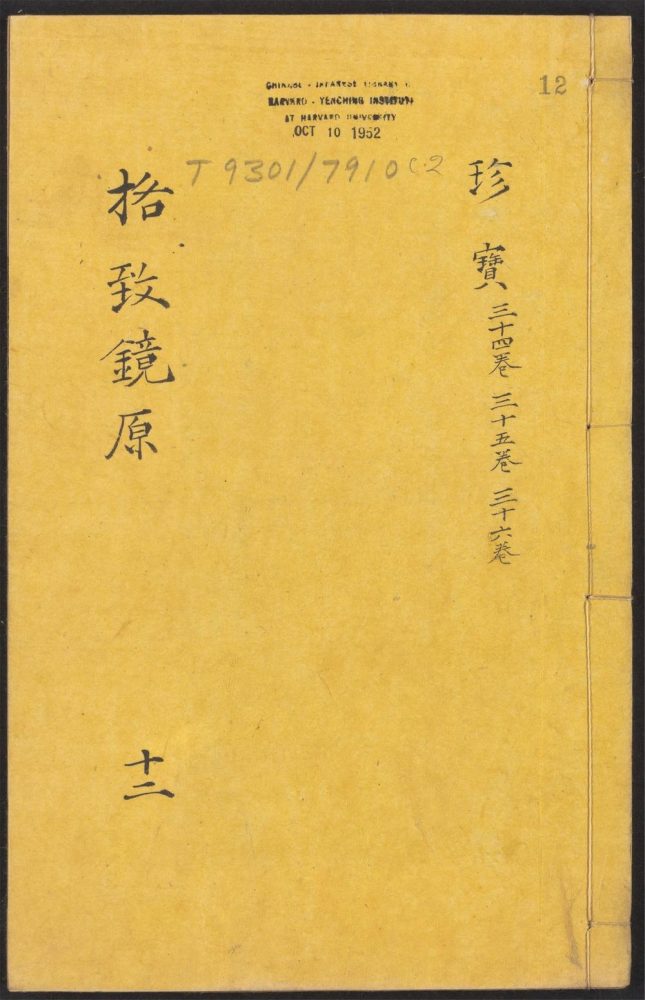 12
CHINESE - JAPANESE LIBRARY
HARVARD - YENCHING INSTITUTE
AT HARVARD UNIVERSITY
OCT 10 1952
T 9301/7910 C.2
珍寶 三十四卷 三十五卷 三十六卷
格致鏡原 十二